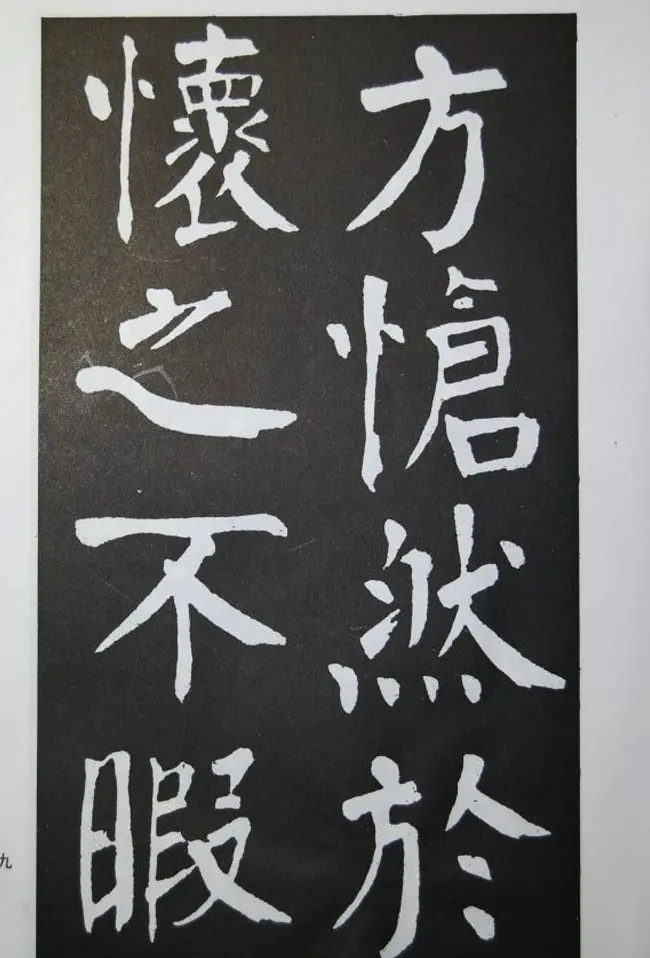 方愴然於
懷之不暇
九